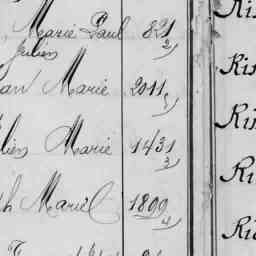 Marie Paul 821
2)
Julien
an Marie 2011
5)
lien Marie 1431
3)
h Marie 1899
4)
Ri
Ri
Ri
Ri
Ri